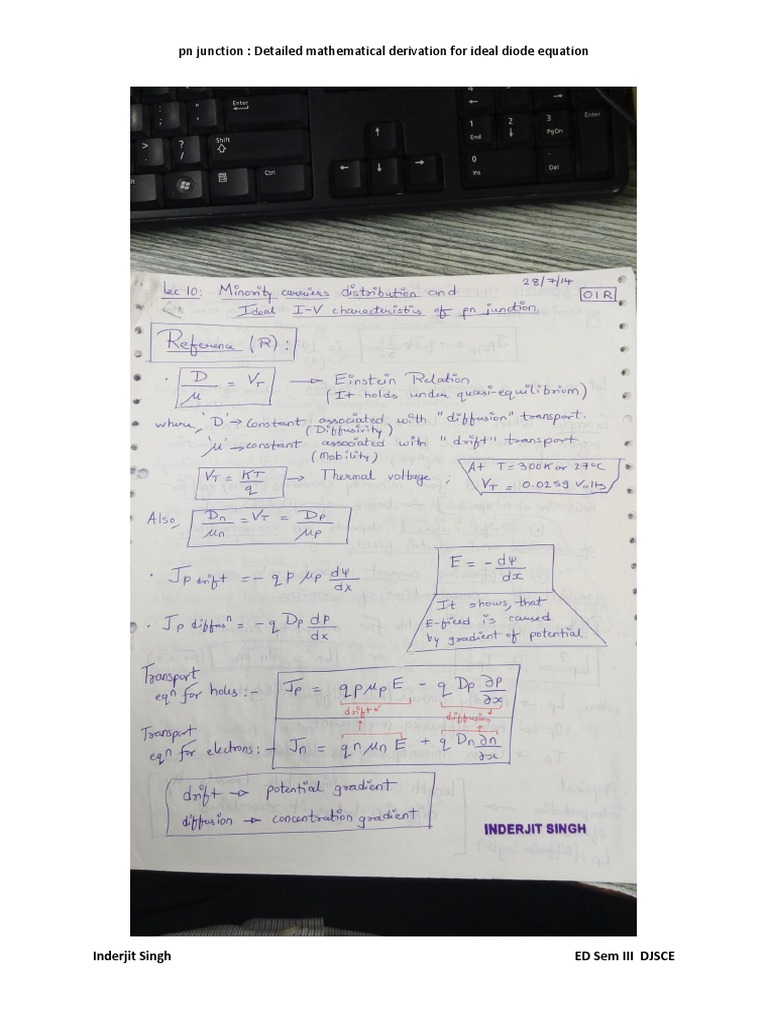 pn junction : Detailed mathematical derivation for ideal diode equation
Enter
Shift
Ctrl
1 End
2
3 PgDn
Enter
0 Ins
. Del
28/7/14
Lec 10: Minority carriers distribution and
01R
Ideal I-V characteristics of pn junction.
Reference (R) :
· D/μ = V_T → Einstein Relation
(It holds under quasi-equilibrium)
where, 'D' → constant associated with "diffusion" transport.
(Diffusivity)
'μ' → constant associated with "drift" transport.
(Mobility)
V_T = KT/q → Thermal voltage ;
At T = 300K or 27°C
V_T = 0.0259 Volts
Also, Dn/μn = V_T = Dp/μp
E = - dψ/dx
· Jp drift = - q p μp dψ/dx
It shows, that
E-field is caused
by gradient of potential.
· Jp diffusⁿ = - q Dp dp/dx
Transport
eqⁿ for holes :- Jp = q p μp E - q Dp ∂p/∂x
drift diffusion
Transport
eqⁿ for electrons :- Jn = q n μn E + q Dn ∂n/∂x
drift → potential gradient
diffusion → concentration gradient
INDERJIT SINGH
Inderjit Singh
ED Sem III DJSCE